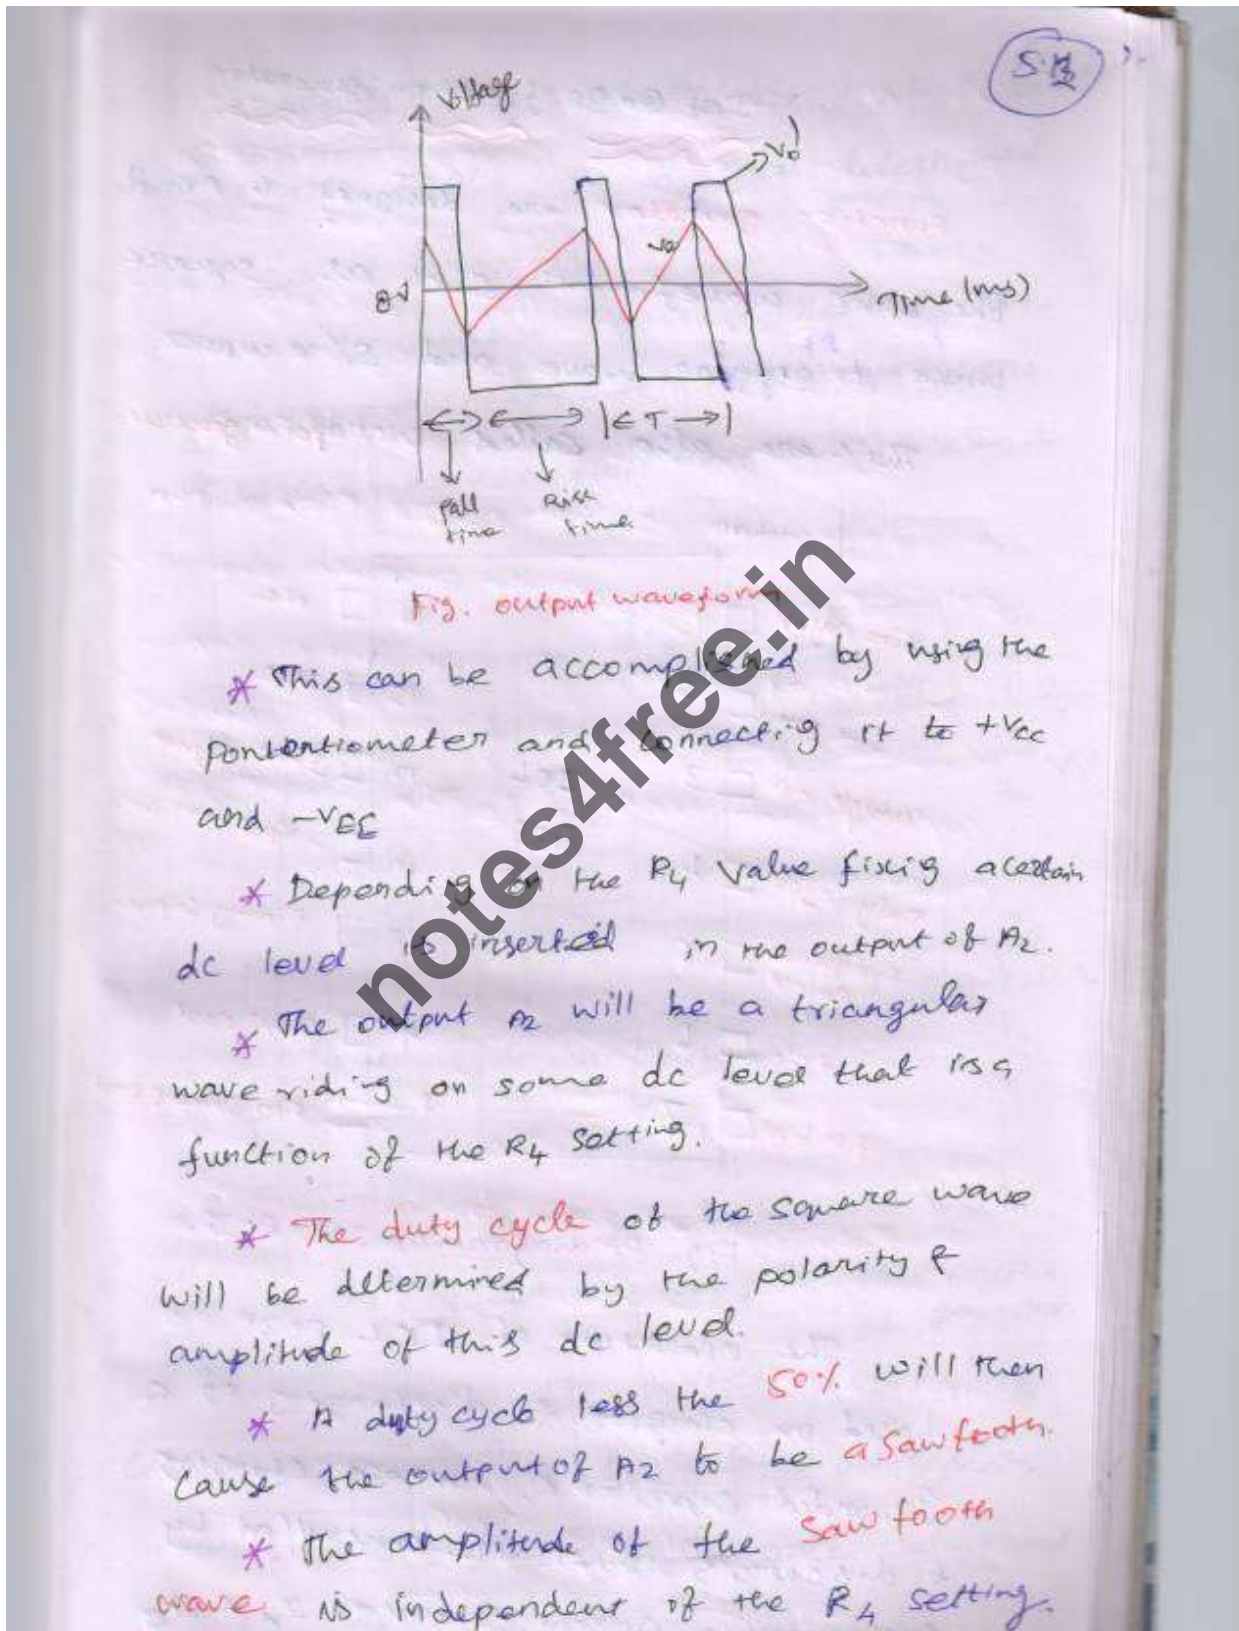 Voltage
Vo'
Vo
0V
Time (ms)
T
Fall
time
Rise
time
Fig. output waveform
* This can be accomplished by using the
pontentiometer and connecting it to +Vcc
and -VEE
* Depending on the R4 value fixig a certain
dc level is inserted in the output of A2.
* The output A2 will be a triangular
wave riding on some dc level that is a
function of the R4 setting.
* The duty cycle of the square wave
will be determined by the polarity &
amplitude of this dc level.
* A duty cycle less the 50% will then
cause the output of A2 to be a sawtooth.
* The amplitude of the sawtooth
wave is independent of the R4 setting.
notes4free.in